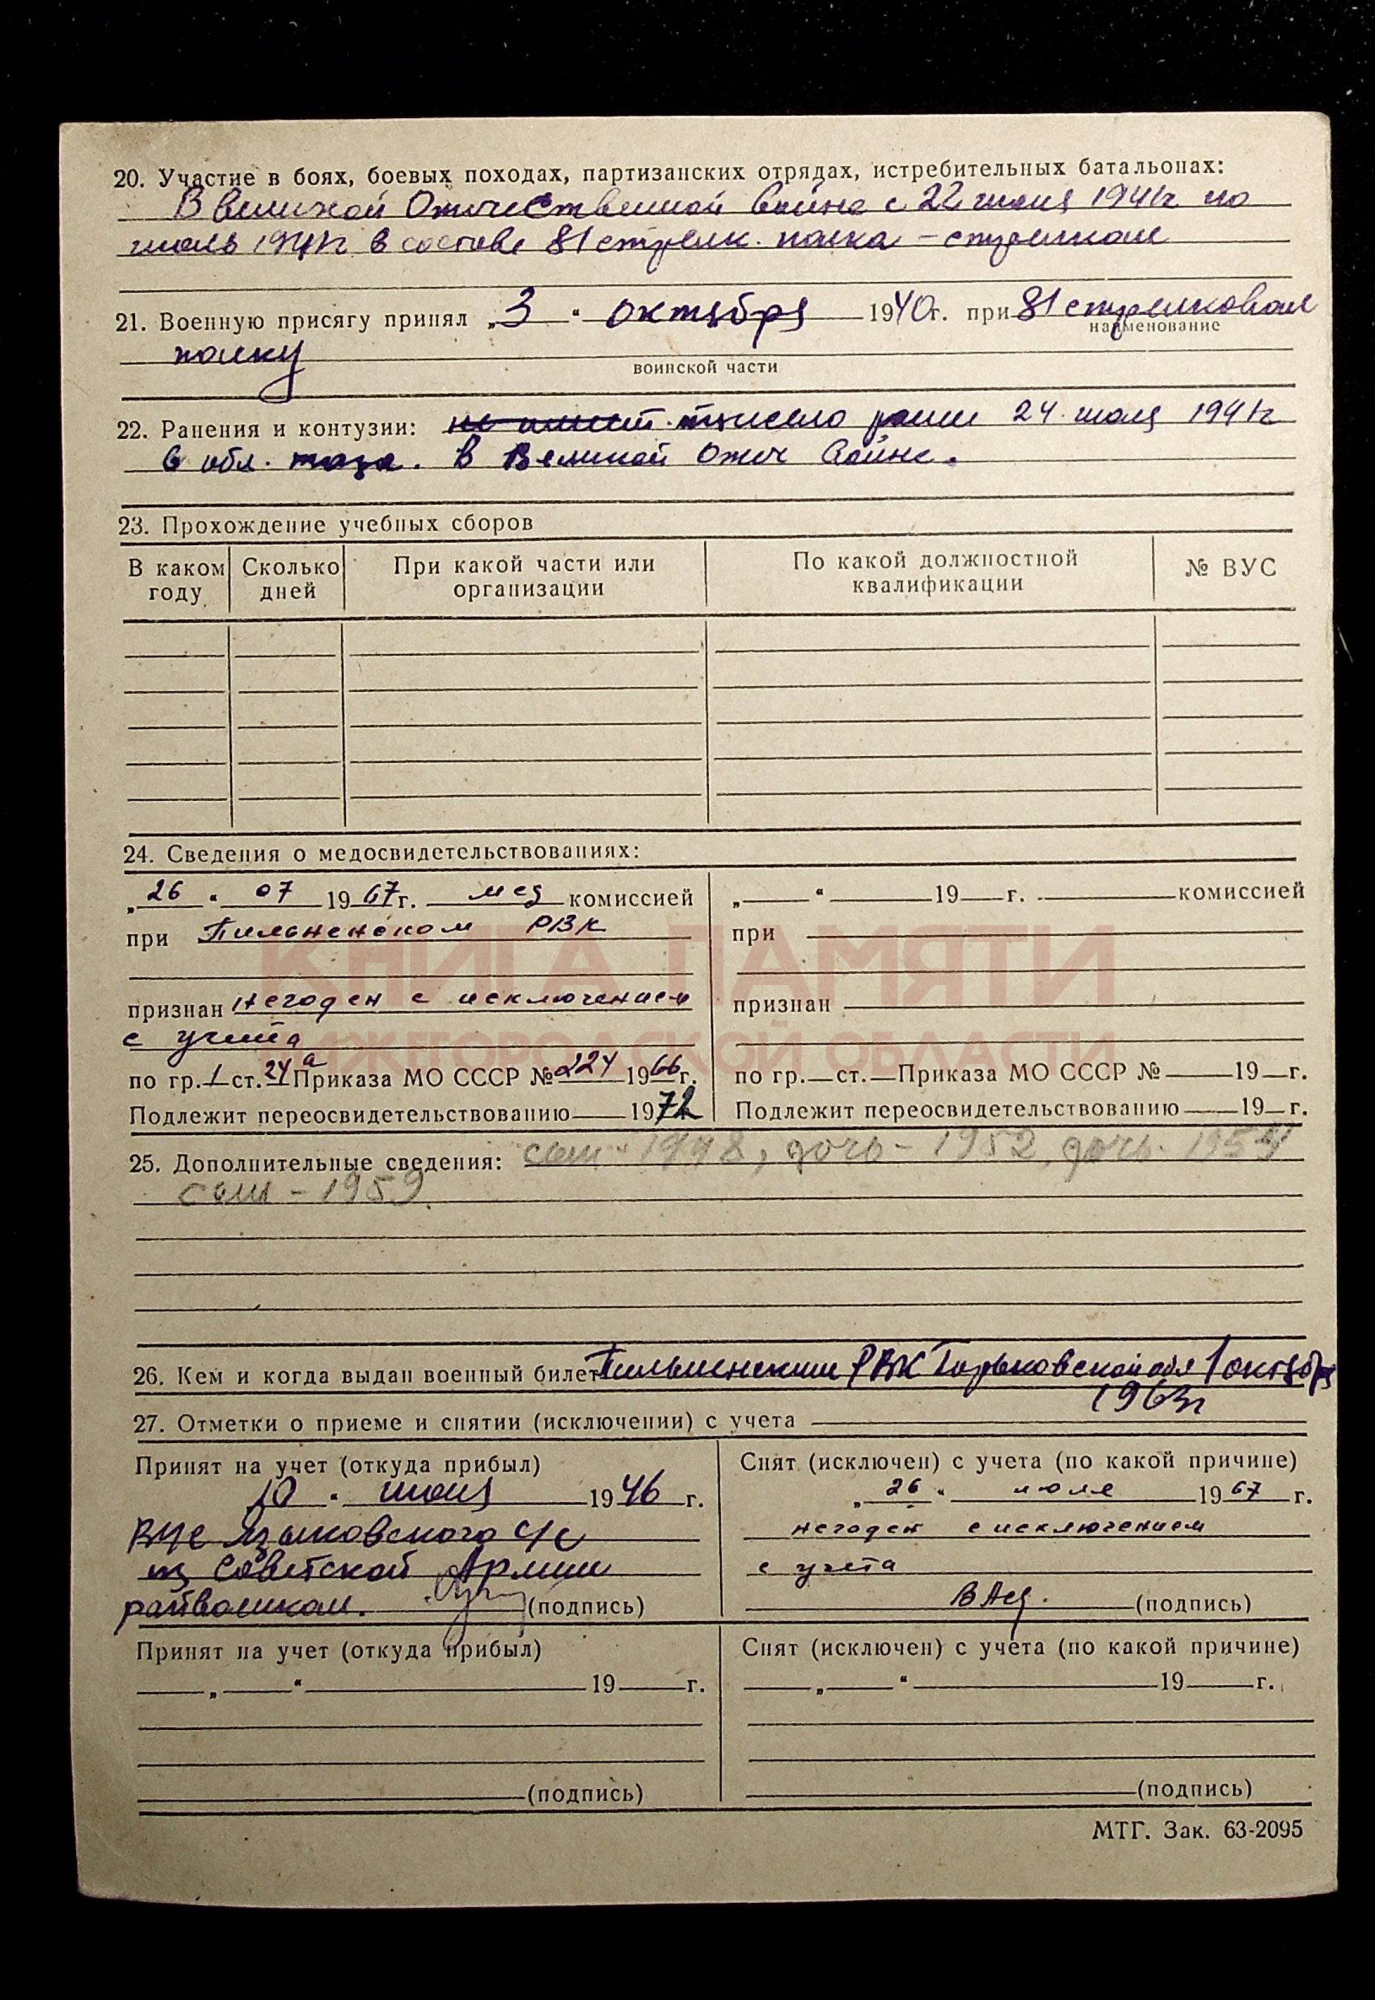 20. Участие в боях, боевых походах, партизанских отрядах, истребительных батальонах:
В Великой Отечественной войне с 22 июня 1941г по
июль 1941г в составе 81 стрелк. полка – стрелком
21. Военную присягу принял „3“ октября 1940г. при 81 стрелковом
наименование
полку
воинской части
22. Ранения и контузии: не имеет. тяжело ранен 24 июля 1941г
в обл. таза. в Великой Отеч войне.
23. Прохождение учебных сборов
В каком году Сколько дней При какой части или организации По какой должностной квалификации № ВУС
24. Сведения о медосвидетельствованиях:
„26“ 07 1967г. мед комиссией
при Пильненском РВК
признан негоден с исключением
с учета
по гр. 1 ст. 24а Приказа МО СССР № 224 1966г.
Подлежит переосвидетельствованию 1972
„ “ 19 г. комиссией
при
признан
по гр. ст. Приказа МО СССР № 19 г.
Подлежит переосвидетельствованию 19 г.
КНИГА ПАМЯТИ
НИЖЕГОРОДСКОЙ ОБЛАСТИ
25. Дополнительные сведения: сын - 1948, дочь - 1952, дочь - 1954
сын - 1959.
26. Кем и когда выдан военный билет Пильненским РВК Горьковской обл 1 октября
1963г
27. Отметки о приеме и снятии (исключении) с учета
Принят на учет (откуда прибыл)
10 “ июля 1946 г.
ВУС Языковского с/с
из Советской Армии
райвоенком. (подпись)
Снят (исключен) с учета (по какой причине)
„26“ июля 1967 г.
негоден с исключением
с учета
(подпись)
Принят на учет (откуда прибыл)
„ “ 19 г.
(подпись)
Снят (исключен) с учета (по какой причине)
„ “ 19 г.
(подпись)
МТГ. Зак. 63-2095